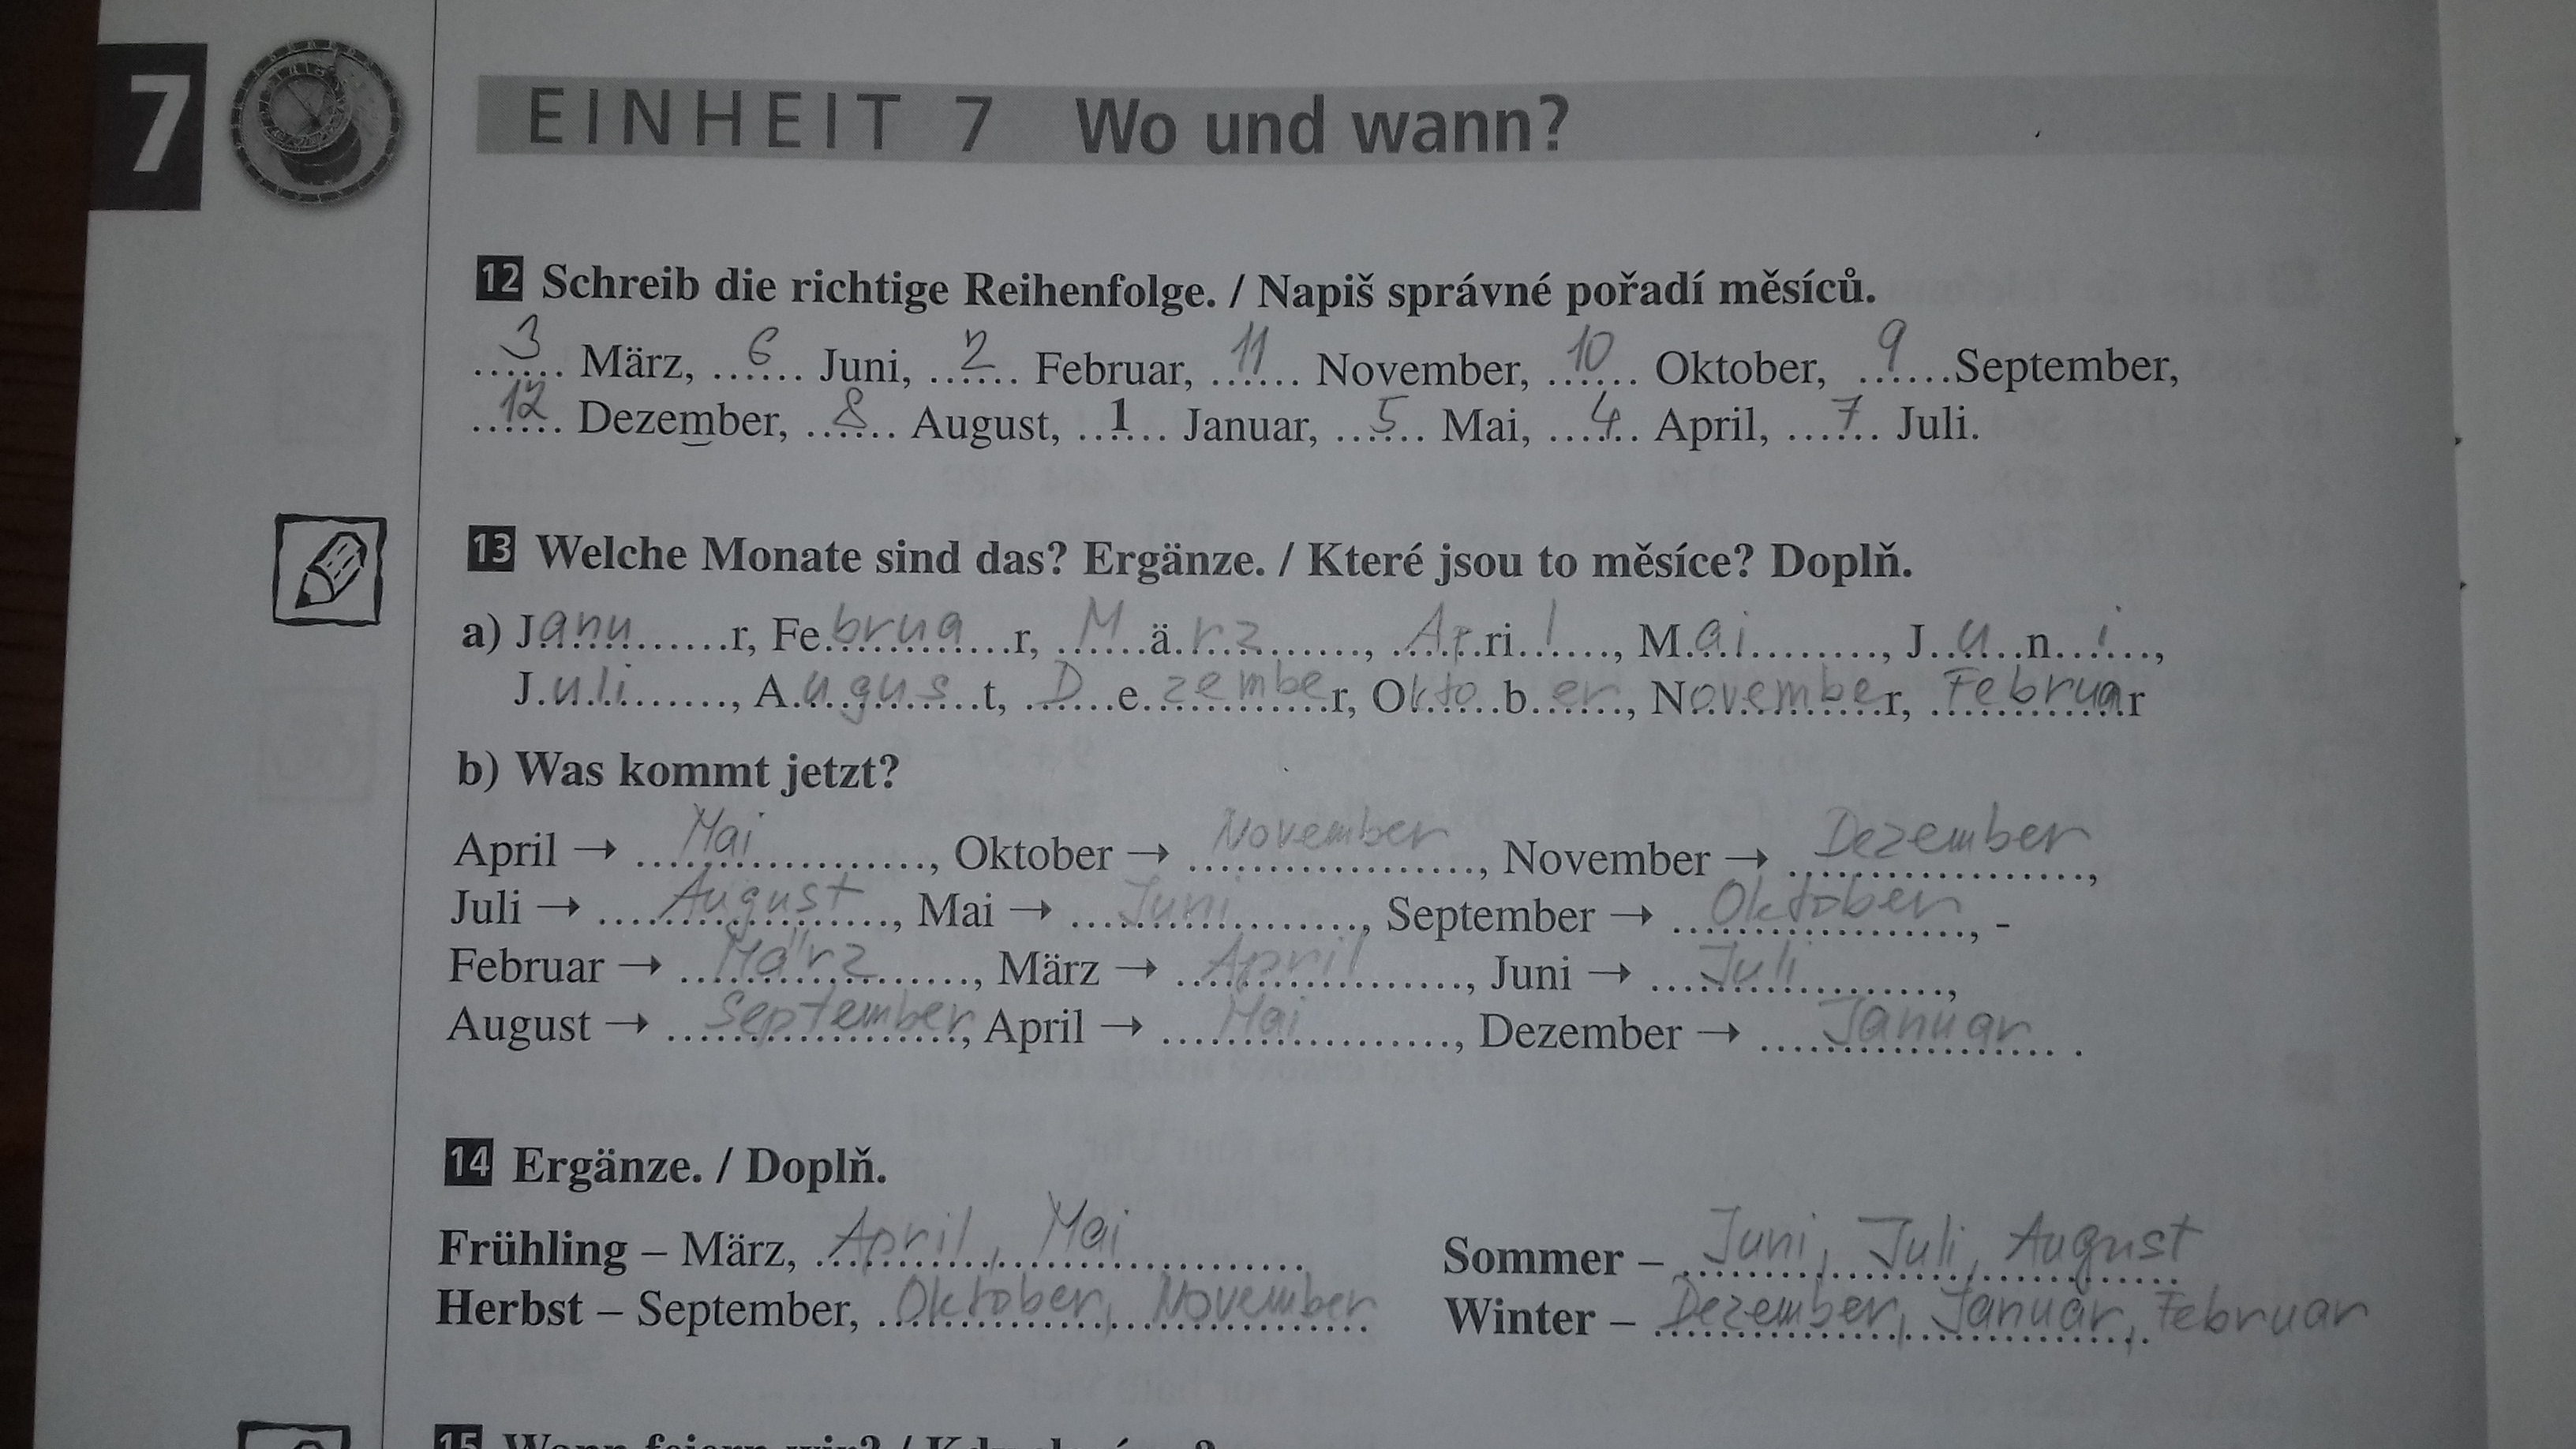 7 EINHEIT 7 Wo und wann?
12 Schreib die richtige Reihenfolge. / Napiš správné pořadí měsíců.
...3... März, ...6... Juni, ...2... Februar, ...11... November, ...10... Oktober, ...9...September,
...12... Dezember, ...8... August, ...1... Januar, ...5... Mai, ...4... April, ...7... Juli.
13 Welche Monate sind das? Ergänze. / Které jsou to měsíce? Doplň.
a) Janu......r, Februa...r, März......, April......, Mai........., Juni...,
Juli......., August, Dezember, Oktober, November, Februar
b) Was kommt jetzt?
April → Mai, Oktober → November, November → Dezember,
Juli → August, Mai → Juni, September → Oktober, -
Februar → März, März → April, Juni → Juli,
August → September, April → Mai, Dezember → Januar.
14 Ergänze. / Doplň.
Frühling – März, April, Mai Sommer – Juni, Juli, August
Herbst – September, Oktober, November Winter – Dezember, Januar, Februar